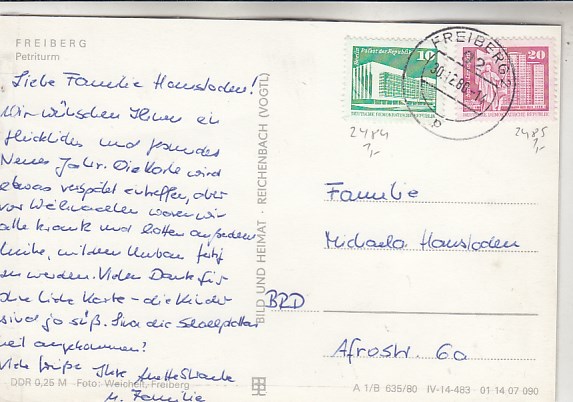 FREIBERG
Petriturm
Liebe Familie Hansladen!
Wir wünschen Ihnen ein
glückliches und gesundes
Neues Jahr. Die Karte wird
etwas verspätet eintreffen, aber
vor Weihnachten waren wir
alle krank und hatten außerdem
Mühe, mit dem Umbau fertig
zu werden. Vielen Dank für
die liebe Karte - die Kinder
sind ja süß. Sind die Schallplatten
heil angekommen?
Viele Grüße Ihre
u. Familie
DDR 0,25 M Foto: Weichelt, Freiberg
BILD UND HEIMAT · REICHENBACH (VOGTL)
10
DEUTSCHE DEMOKRATISCHE REPUBLIK
20
DEUTSCHE DEMOKRATISCHE REPUBLIK
FREIBERG
b
2484
1,-
2485
1,-
Familie
Michaela Hansladen
BRD
Afrostr. 6a
A 1/B 635/80 IV-14-483 01 14 07 090